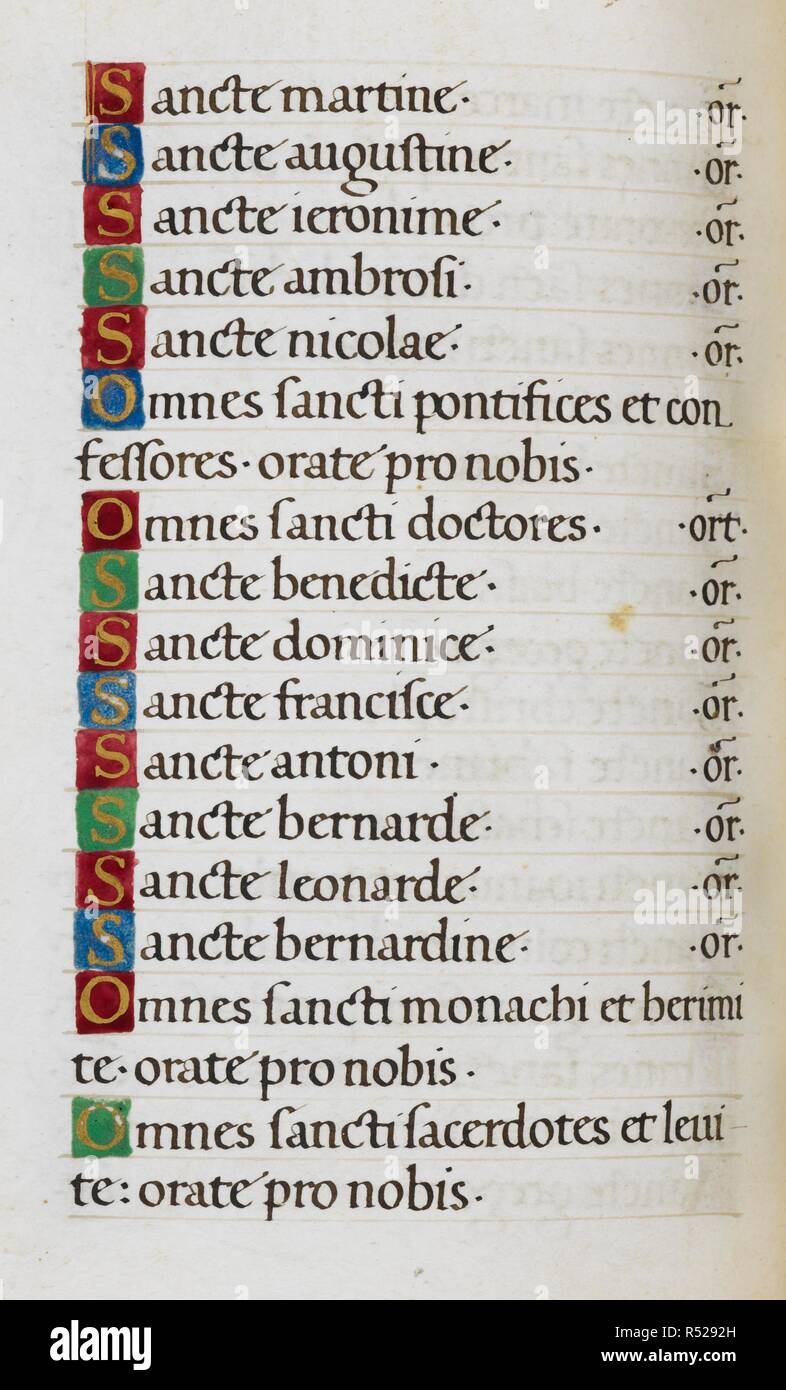 Sancte martine· ·or̄·
Sancte auguſtine· ·or̄·
Sancte ieronime· ·or̄·
Sancte ambroſi· ·or̄·
Sancte nicolae· ·or̄·
Omnes ſancti pontifices et con
feſſores· orate pro nobis·
Omnes ſancti doctores· ·or̄t·
Sancte benedicte· ·or̄·
Sancte dominice· ·or̄·
Sancte franciſce· ·or̄·
Sancte antoni· ·or̄·
Sancte bernarde· ·or̄·
Sancte leonarde· ·or̄·
Sancte bernardine· ·or̄·
Omnes ſancti monachi et herimi
te· orate pro nobis·
Omnes ſancti ſacerdotes et leui-
te: orate pro nobis·
alamy
Image ID: R5292H
www.alamy.com